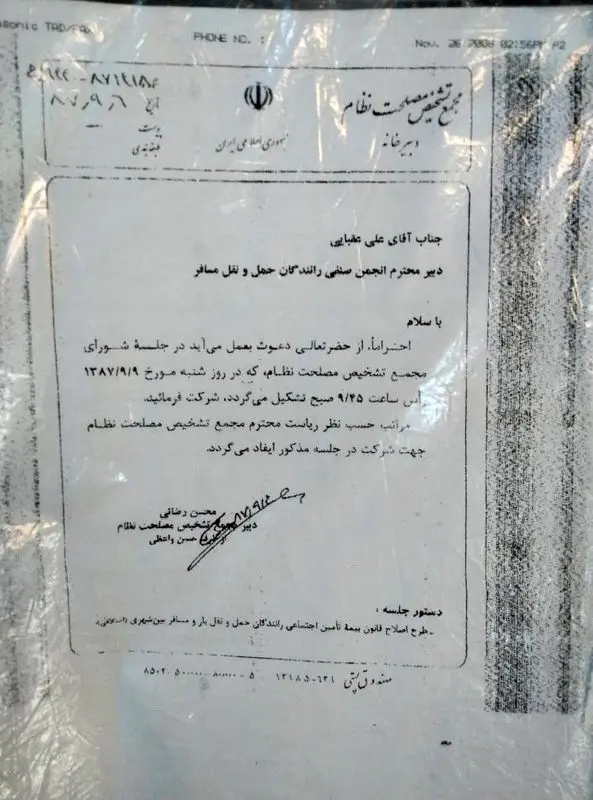 PHONE NO. :
Nov. 26 2008 02:56PM P2
مجمع تشخیص مصلحت نظام
دبیرخانه
جمهوری اسلامی ایران
تاریخ ۸۷٫۹٫۶
پیوست
طبقه‌بندی
جناب آقای علی عقبایی
دبیر محترم انجمن صنفی رانندگان حمل و نقل مسافر
با سلام
احتراماً، از حضرتعالی دعوت بعمل می‌آید در جلسهٔ شورای
مجمع تشخیص مصلحت نظام، که در روز شنبه مورخ ۱۳۸۷/۹/۹
رأس ساعت ۹/۴۵ صبح تشکیل می‌گردد، شرکت فرمائید.
مراتب حسب نظر ریاست محترم مجمع تشخیص مصلحت نظام
جهت شرکت در جلسه مذکور ایفاد می‌گردد.
محسن رضائی
دبیر مجمع تشخیص مصلحت نظام
از طرف حسن واعظی
دستور جلسه :
ـ طرح اصلاح قانون بیمهٔ تأمین اجتماعی رانندگان حمل و نقل بار و مسافر بین‌شهری
صندوق پستی ۶۳۱-۱۳۱۸۵